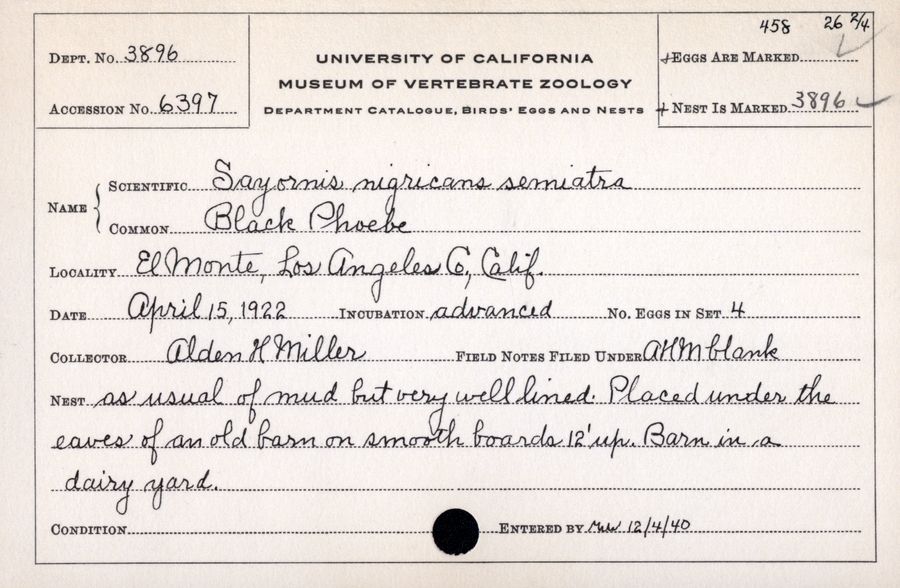 458 26 2/4
Dept. No. 3896
UNIVERSITY OF CALIFORNIA
+Eggs Are Marked
MUSEUM OF VERTEBRATE ZOOLOGY
Accession No. 6397
Department Catalogue, Birds' Eggs and Nests
+ Nest Is Marked 3896
Name
Scientific Sayornis nigricans semiatra
Common Black Phoebe
Locality El Monte, Los Angeles Co, Calif.
Date April 15, 1922 Incubation advanced No. Eggs in Set 4
Collector Alden H Miller Field Notes Filed Under AHM blank
Nest as usual of mud but very well lined. Placed under the
eaves of an old barn on smooth boards 12' up. Barn in a
dairy yard.
Condition Entered by 12/4/40